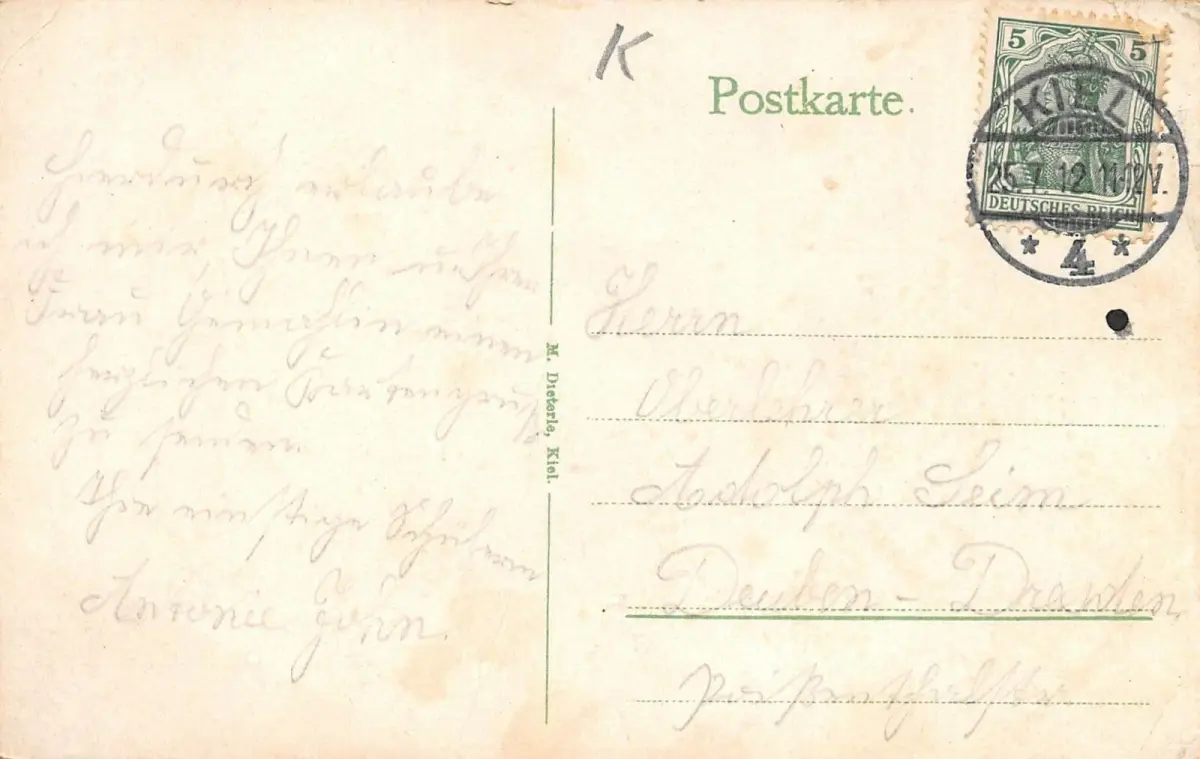 K
Postkarte.
5 5
KIEL
25.7.12.11-12V.
DEUTSCHES REICH
* 4 *
Hierdurch erlaube
ich mir, Ihnen u. Ihrer
Frau Gemahlin einen
herzlichen Kartengruß
zu senden.
Ihre einstige Schülerin
Antonie John.
M. Dieterle, Kiel.
Herrn
Oberlehrer
Adolph Seim
Deuben - Dresden